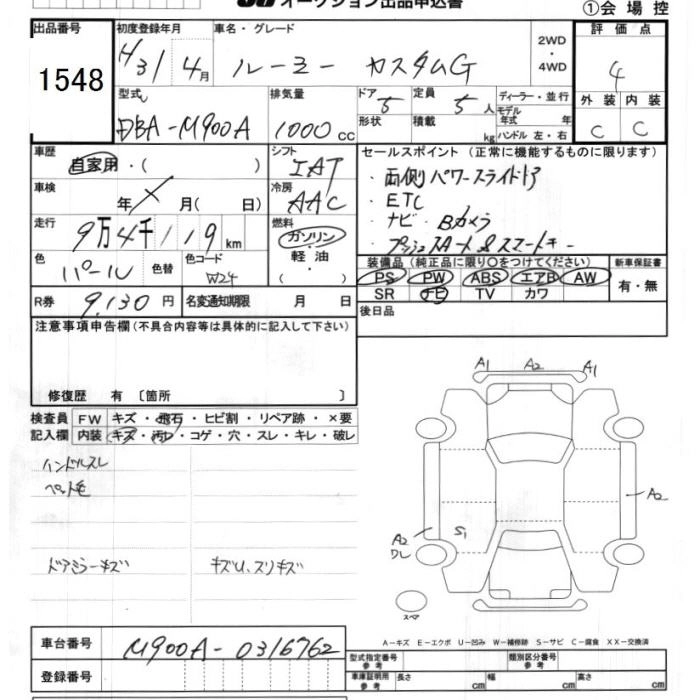 オークション出品申込書
①会場控
出品番号
1548
初度登録年月
H31 / 4月
車名・グレード
ルーミー カスタムG
2WD
・
4WD
評価点
4
外装 内装
C C
型式
DBA-M900A
排気量
1000 cc
ドア 5
形状
定員 5人
積載 kg
ディーラー・並行
モデル
年式 年
ハンドル 左・右
車歴
自家用・( )
シフト
IAT
車検
年 × 月( 日)
冷房
AAC
走行
9万4千119 km
燃料
ガソリン
軽油
( ・ )
色
パール
色替
色コード
W24
R券 9,130 円
名変通知期限 月 日
セールスポイント (正常に機能するものに限ります)
・両側パワースライドドア
・ETC
・ナビ・Bカメラ
・プッシュスタート&スマートキー
装備品 (純正品に限り○をつけてください)
PS PW ABS エアB AW
SR ナビ TV カワ
新車保証書
有・無
後日品
注意事項申告欄(不具合内容等は具体的に記入して下さい)
修復歴 有 〔箇所 〕
検査員
記入欄
FW キズ・飛石・ヒビ割・リペア跡・×要
内装 キズ・汚レ・コゲ・穴・スレ・キレ・破レ
ハンドルスレ
ペット毛
ドアミラーキズ キズU、スリキズ
A1 A2 A1
A2
A2
S1
スペア
A-キズ E-エクボ U-凹み W-補修跡 S-サビ C-腐食 XX-交換済
車台番号 M900A-0316762
登録番号
型式指定番号
参考
類別区分番号
参考
車庫証明用
参考
長さ cm 幅 cm 高さ cm